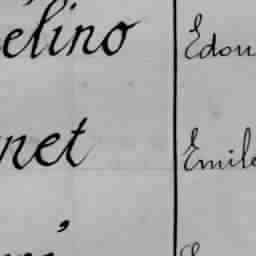 elino Edou
net Emile